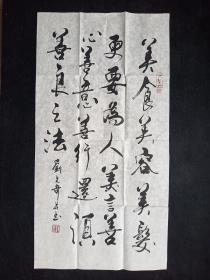 美食美容美髮
更要為人美言善
心善意善行還須
善良之法